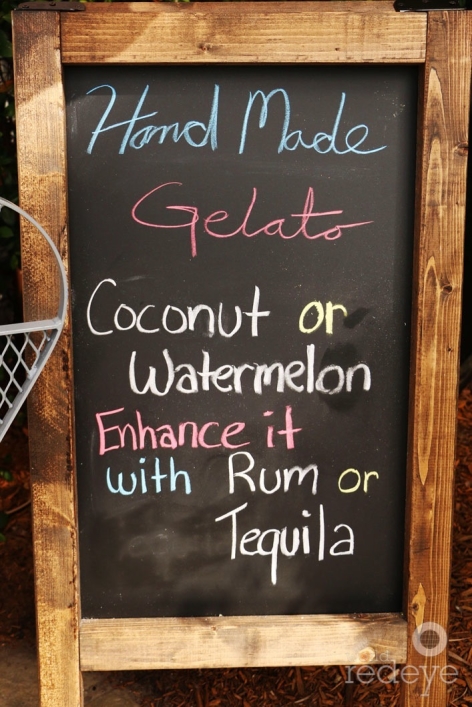 Hand Made
Gelato
Coconut or
Watermelon
Enhance it
with Rum or
Tequila
redeye